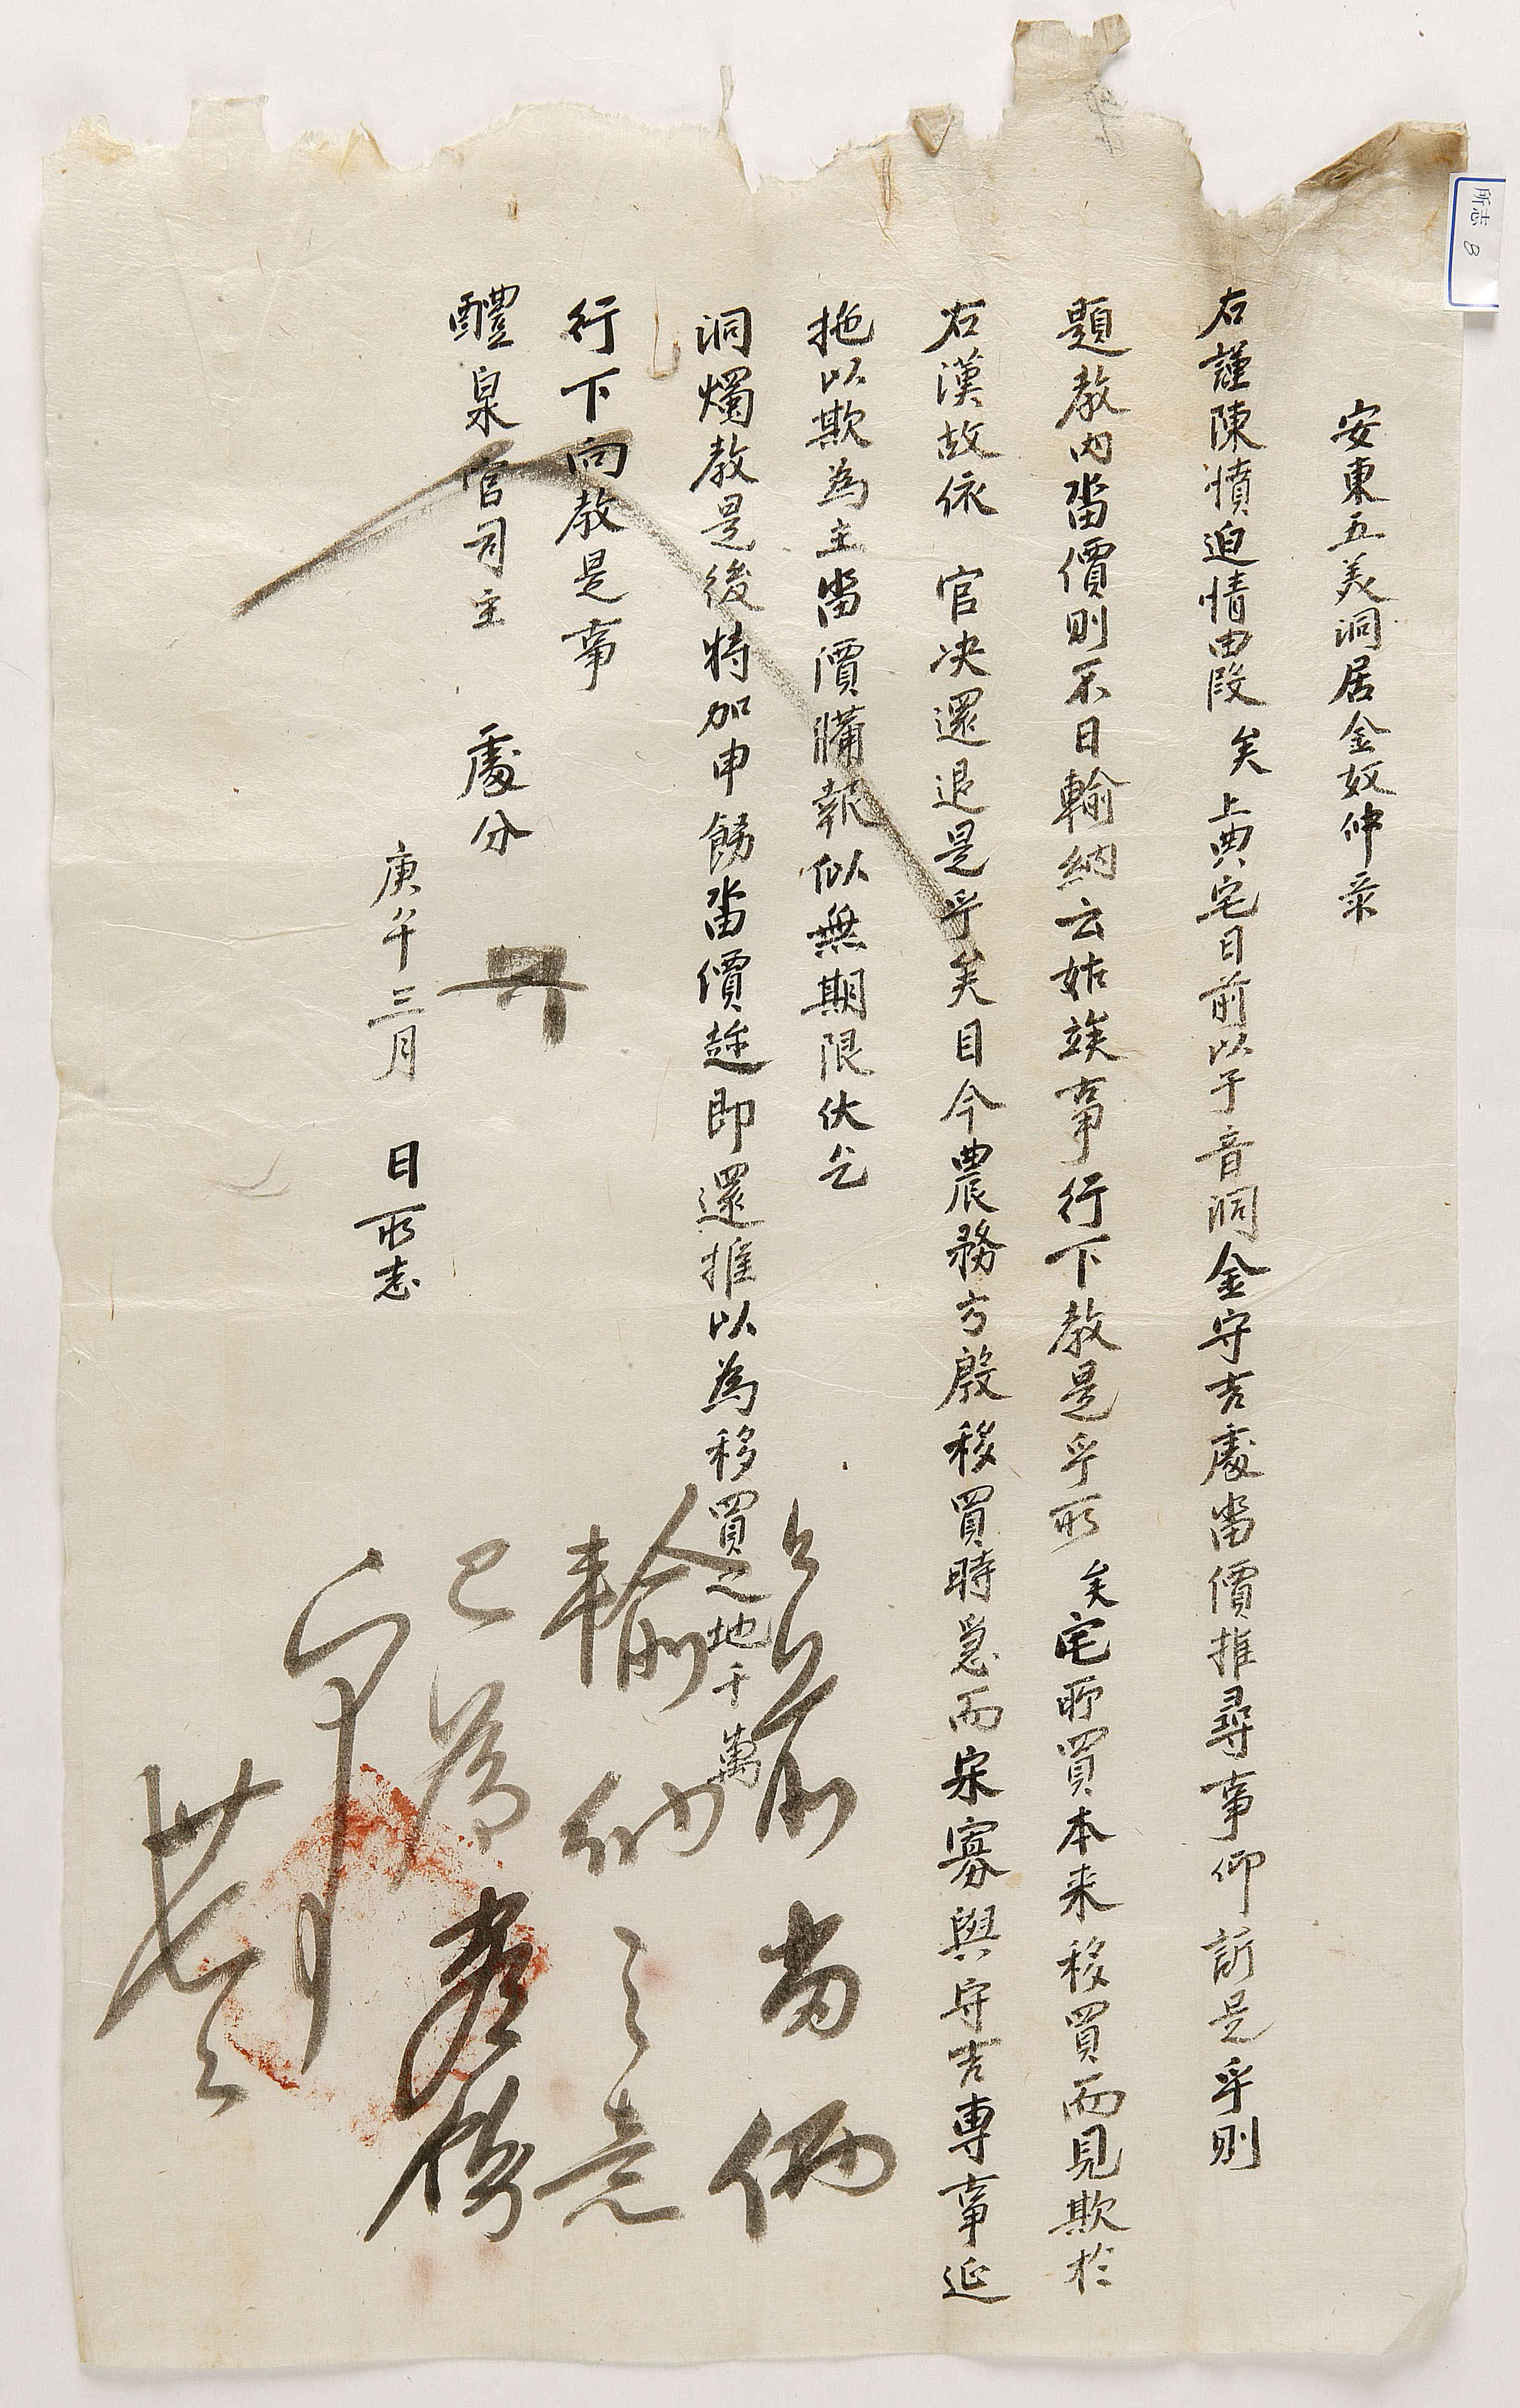 安東五美洞居金奴仲彔
右謹陳憤迫情由段 矣上典宅日前以于音洞金守吉處畓價推尋事仰訴是乎則
題教內畓價則不日輸納云姑竢事行下教是乎所 矣宅所買本来移買而見欺於
右漢故依 官决還退是乎矣目今農務方殷移買時急而宋寡與守吉專事延
拖以欺為主畓價備報似無期限伏乞
洞燭教是後特加申飭畓價趂即還推以為移買之地千萬
行下向教是事
醴泉官司主 處分
庚午三月 日所志
官
以前
畓価
輸納之意
已為
向事
卄七
所志 8